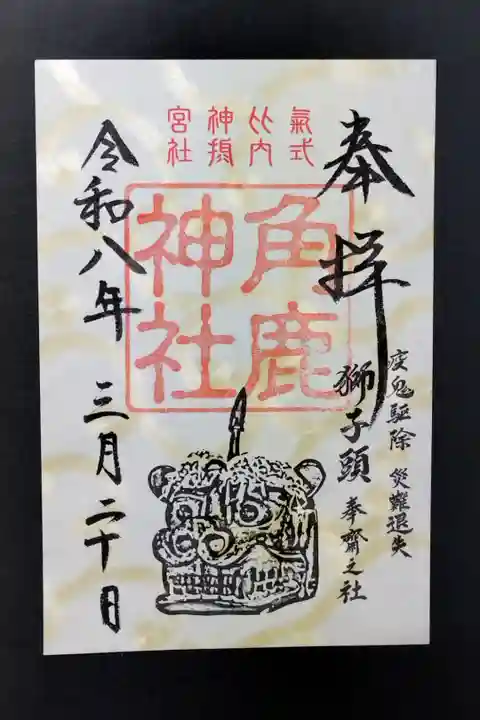 奉拝
疫鬼駆除 災難退失
獅子頭 奉齋之社
氣比神宮
式内摂社
角鹿
神社
令和八年 三月二十日